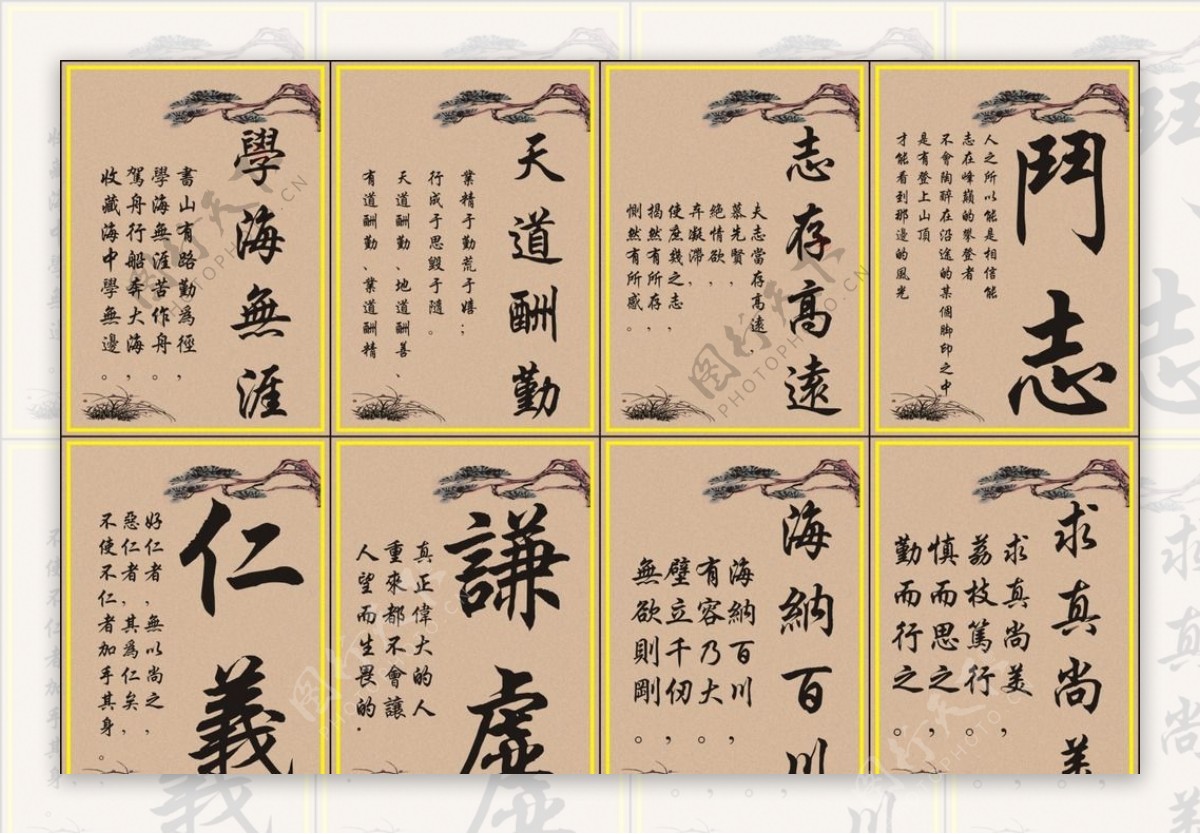 學海無涯
書山有路勤為徑，
學海無涯苦作舟。
駕舟行船奔大海，
收藏海中學無邊。
天道酬勤
業精于勤荒于嬉；
行成于思毀于隨。
天道酬勤、地道酬善、
有道酬勤、業道酬精
志存高遠
夫志當存高遠，
慕先賢，
絕情欲，
弃凝滯，
使庶幾之志，
揭然有所存，
惻然有所感。
鬥志
人之所以能是相信能
志在峰巔的攀登者
不會陶醉在沿途的某個脚印之中
是有登上山頂
才能看到那邊的風光
仁義
好仁者，無以尚之，
惡仁者，其為仁矣，
不使不仁者加手其身。
謙虛
真正偉大的人
重來都不會讓
人望而生畏的.
海納百川
海納百川，
有容乃大。
壁立千仞，
無欲則剛。
求真尚美
求真尚美，
荔枝篤行。
慎而思之，
勤而行之。
图行天下
PHOTOPHOTO.CN